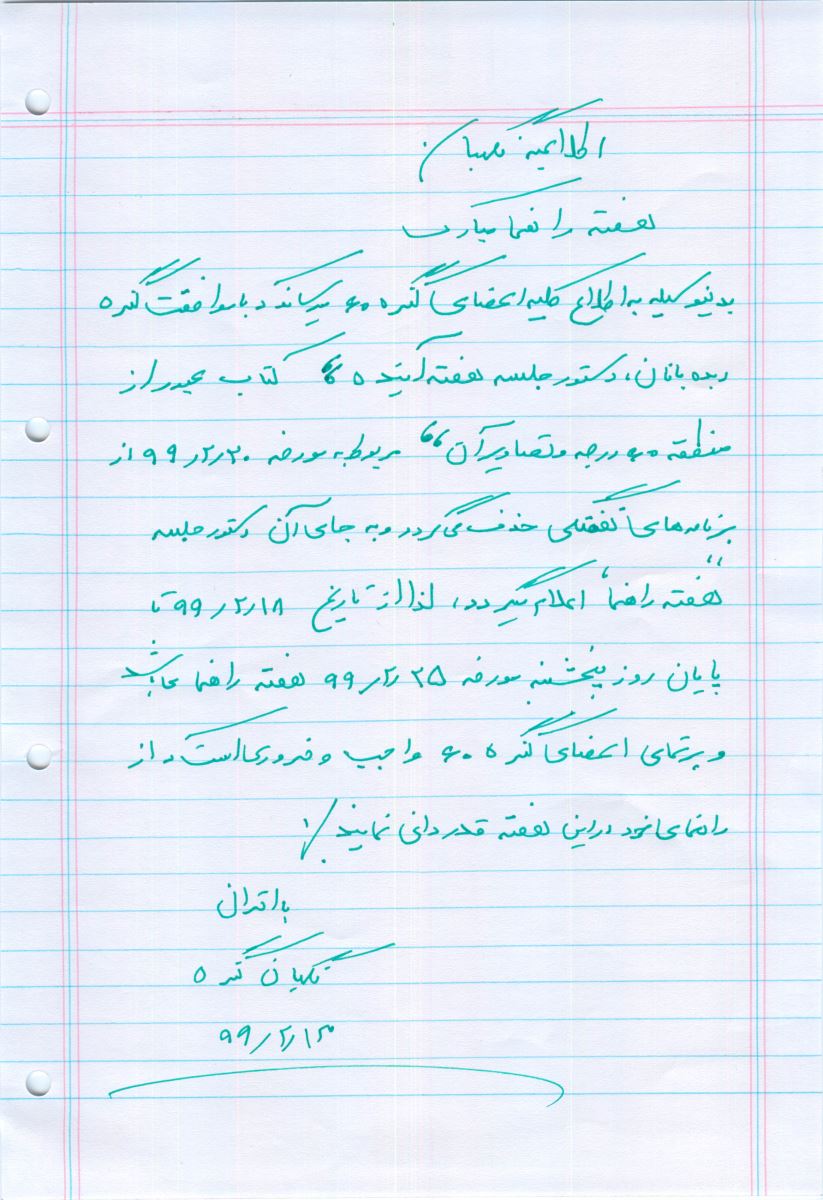 اطلاعیه نگهبان
هفته راهنما مبارک
بدینوسیله به اطلاع کلیه اعضای کنگره ۶۰ میرساند که با موافقت کنگره
دیده بانان، دستور جلسه هفته آینده " کتاب عبور از
منطقه ۶۰ درجه و تصاویر آن " مربوط به مورخه ۹۹٫۲٫۲۰ از
برنامه‌های هفتگی حذف می گردد و به جای آن دستور جلسه
"هفته راهنما" اعلام میگردد، لذا از تاریخ ۹۹٫۲٫۱۸ تا
پایان روز پنجشنبه مورخه ۹۹٫۲٫۲۵ هفته راهنما می‌باشد
و بر تمامی اعضای کنگره ۶۰ واجب و ضروری است که از
راهنمای خود در این هفته قدردانی نمایند./
با احترام
نگهبان کنگره ۶۰
۹۹٫۲٫۱۳